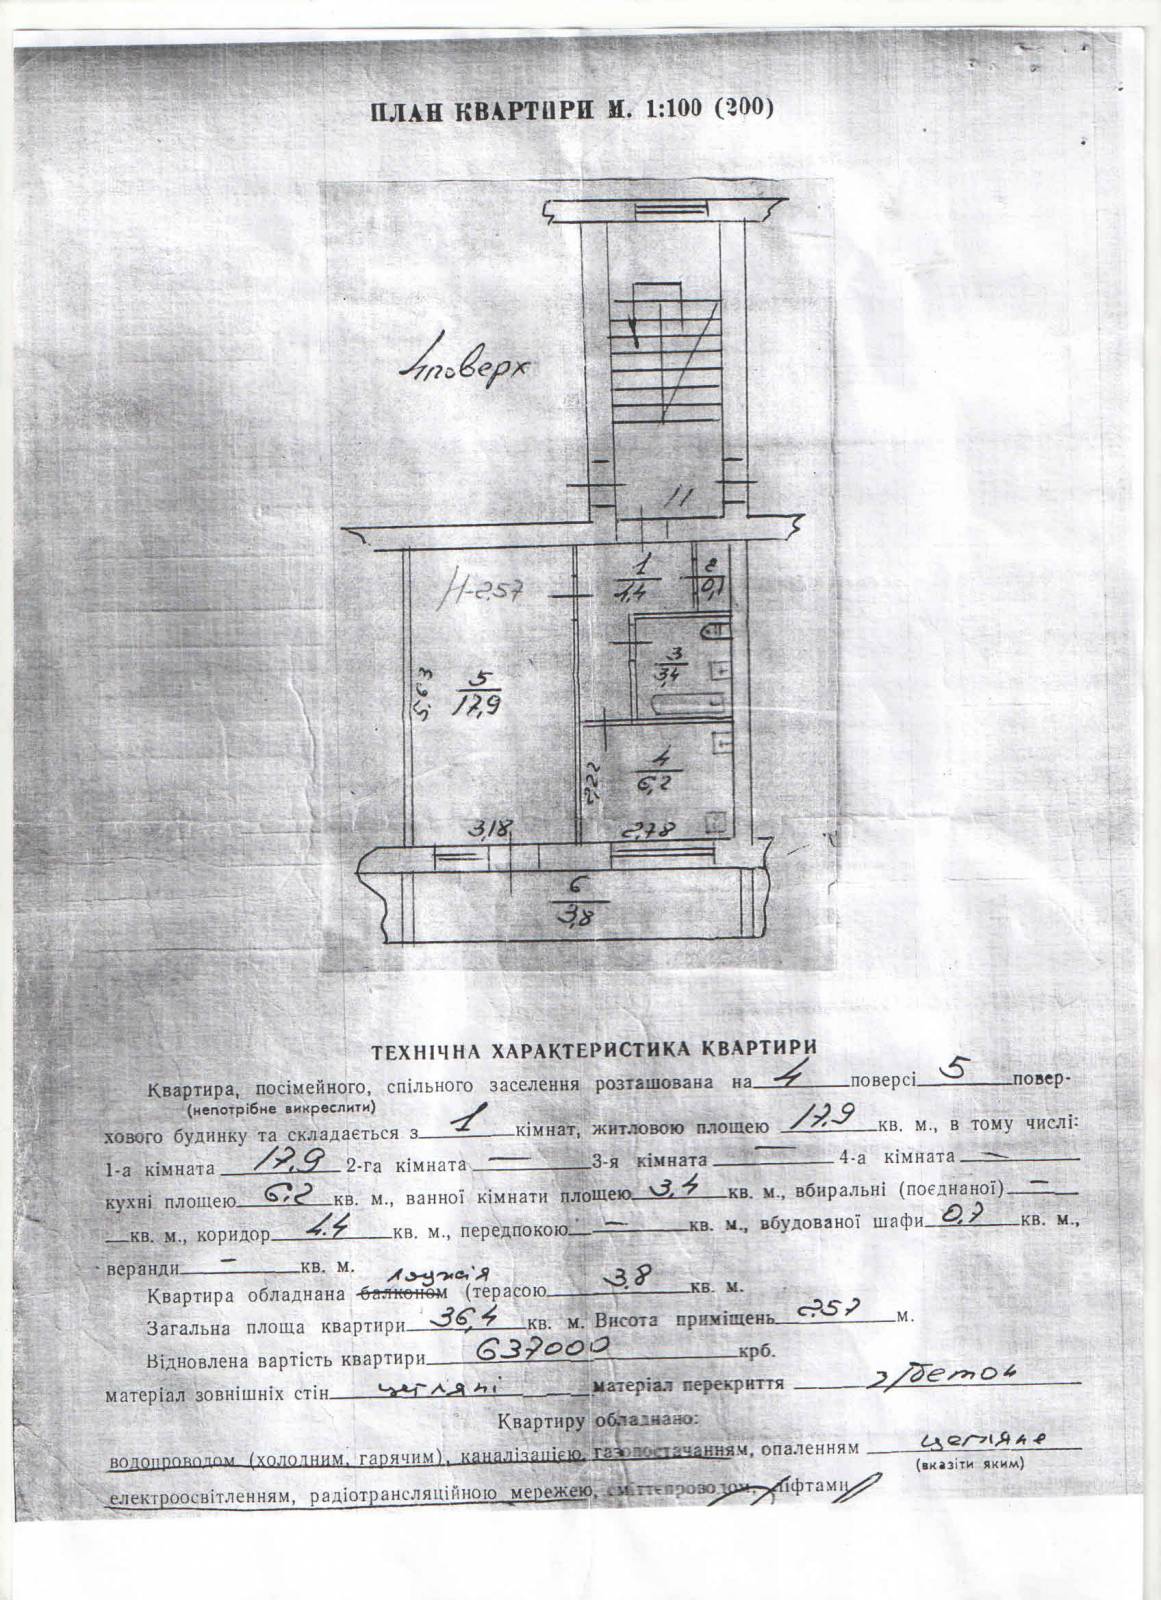 ПЛАН КВАРТИРИ М. 1:100 (200)
4 поверх
11
H-2.57
1
4,4
2
0,7
3
3,4
5,63
5
17,9
4
6,2
2,22
3,18
2,78
6
3,8
ТЕХНІЧНА ХАРАКТЕРИСТИКА КВАРТИРИ
Квартира, посімейного, спільного заселення розташована на 4 поверсі 5 повер-
(непотрібне викреслити)
хового будинку та складається з 1 кімнат, житловою площею 17,9 кв. м., в тому числі:
1-а кімната 17,9 2-га кімната — 3-я кімната — 4-а кімната —
кухні площею 6,2 кв. м., ванної кімнати площею 3,4 кв. м., вбиральні (поєднаної) —
кв. м., коридор 4.4 кв. м., передпокою — кв. м., вбудованої шафи 0,7 кв. м.,
веранди — кв. м.
лоджія
Квартира обладнана балконом (терасою 3.8 кв. м.
Загальна площа квартири 36,4 кв. м. Висота приміщень 2.57 м.
Відновлена вартість квартири 637000 крб.
матеріал зовнішніх стін цегляні матеріал перекриття з/бетон
Квартиру обладнано:
водопроводом (холодним, гарячим), каналізацією, газопостачанням, опаленням
(вказіти яким)
електроосвітленням, радіотрансляційною мережею, сміттєпроводом, ліфтами